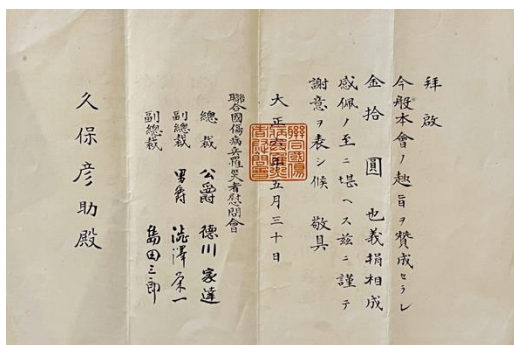 拜啟
今般本會ノ趣旨ヲ賛成セラレ
金拾圓也義捐相成
感佩ノ至ニ堪ヘス茲ニ謹テ
謝意ヲ表シ候 敬具
大正六年五月三十日
聯合國傷病兵罹災者慰問會
總裁 公爵 德川家達
副總裁 男爵 澁澤榮一
副總裁 島田三郎
久保彦助殿